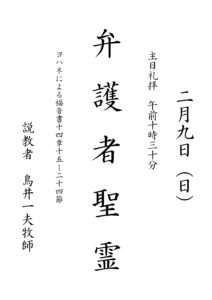 二月九日（日）
主日礼拝　午前十時三十分
弁護者聖霊
ヨハネによる福音書十四章十五－二十四節
説教者　鳥井一夫牧師